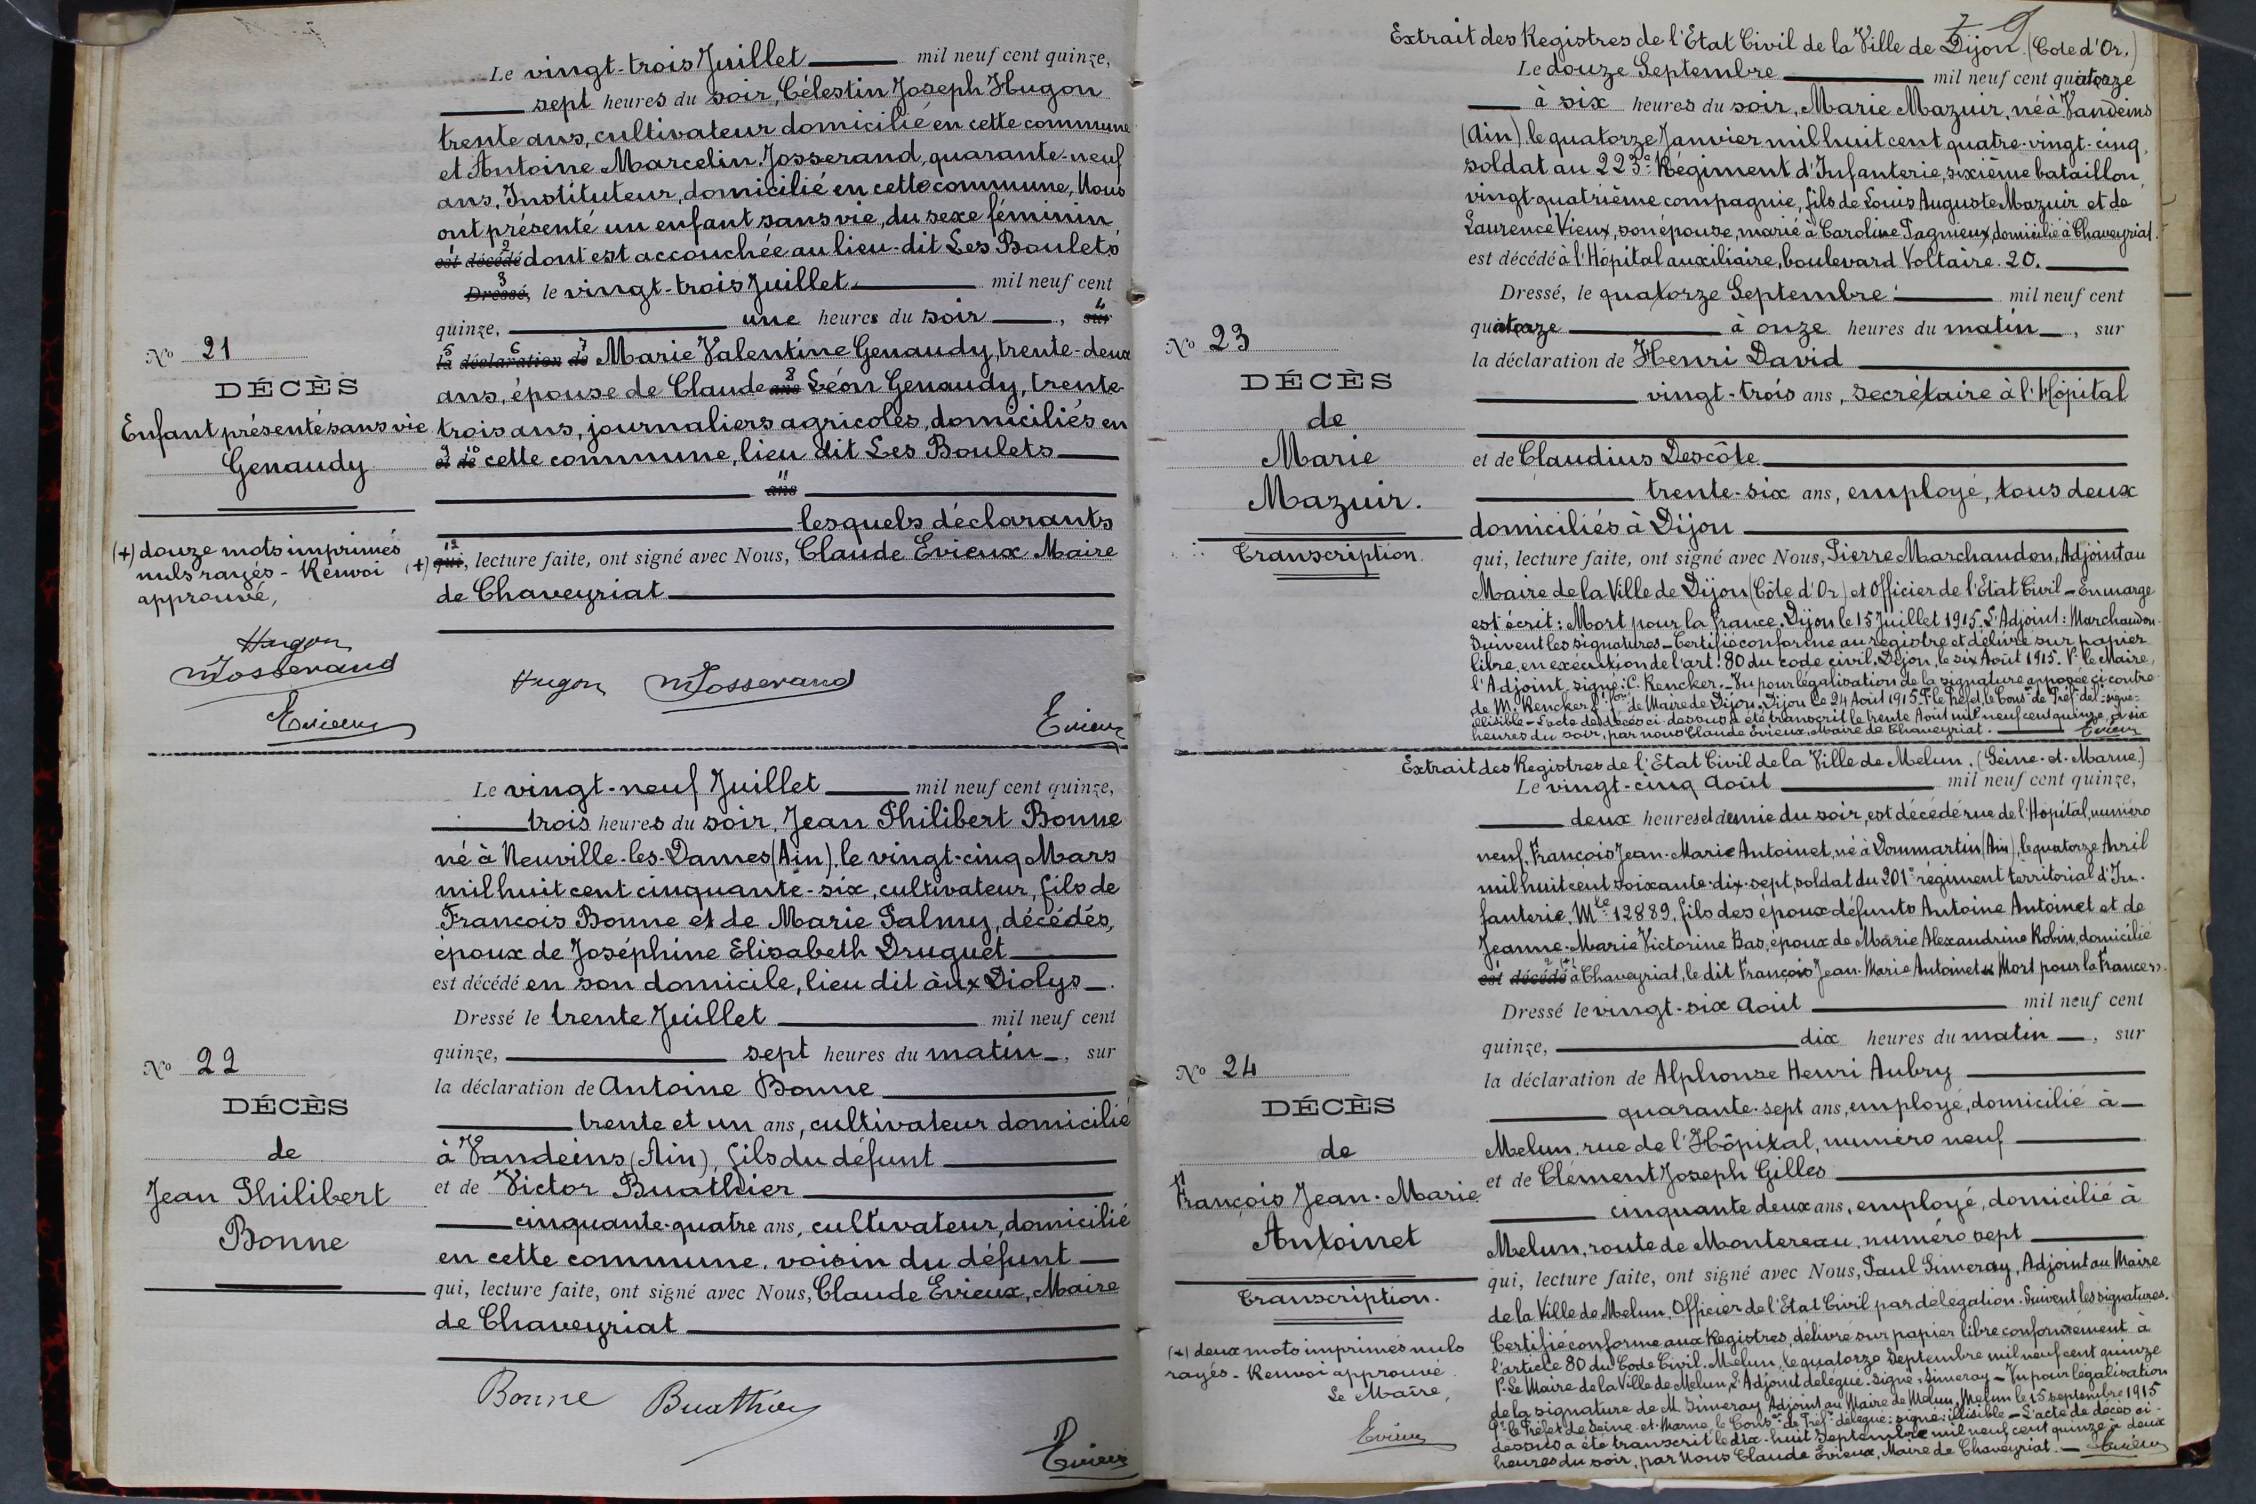 Le vingt-trois Juillet mil neuf cent quinze,
sept heures du soir, Célestin Joseph Hugon
trente ans, cultivateur domicilié en cette commune
et Antoine Marcelin Josserand, quarante-neuf
ans, Instituteur, domicilié en cette commune, Nous
ont présenté un enfant sans vie, du sexe féminin
est décédé 2 dont est accouchée au lieu-dit Les Boulets
3 Dressé, le vingt-trois Juillet mil neuf cent
quinze, une heures du soir, 4 sur
5 la 6 déclaration 7 de Marie Valentine Genaudy, trente-deux
ans, épouse de Claude 8 ans Léon Genaudy, trente-
trois ans, journaliers agricoles, domiciliés en
9 et 10 de cette commune, lieu dit Les Boulets
11 ans
lesquels déclarants
(+) 12 qui, lecture faite, ont signé avec Nous, Claude Evieux Maire
de Chaveyriat
Hugon MJosserand
Evieux
No 21
DÉCÈS
Enfant présenté sans vie
Genaudy
(+) douze mots imprimés
nuls rayés - Renvoi
approuvé,
Hugon
MJosserand
Evieux
Le vingt-neuf Juillet mil neuf cent quinze,
trois heures du soir, Jean Philibert Bonne
né à Neuville-les-Dames (Ain), le vingt-cinq Mars
mil huit cent cinquante-six, cultivateur, fils de
François Bonne et de Marie Palmy, décédés,
époux de Joséphine Elisabeth Druguet
est décédé en son domicile, lieu dit aux Diolys
Dressé le trente Juillet mil neuf cent
quinze, sept heures du matin, sur
la déclaration de Antoine Bonne
trente et un ans, cultivateur domicilié
à Vandeins (Ain), fils du défunt
et de Victor Buathier
cinquante-quatre ans, cultivateur, domicilié
en cette commune, voisin du défunt
qui, lecture faite, ont signé avec Nous, Claude Evieux, Maire
de Chaveyriat
Bonne Buathier
Evieux
No 22
DÉCÈS
de
Jean Philibert
Bonne
Extrait des Registres de l'Etat Civil de la Ville de Dijon (Cote d'Or.)
Le douze Septembre mil neuf cent quatorze
à six heures du soir, Marie Mazuir, né à Vandeins
(Ain) le quatorze Janvier mil huit cent quatre-vingt-cinq,
soldat au 223e Régiment d'Infanterie, sixième bataillon,
vingt-quatrième compagnie, fils de Louis Auguste Mazuir et de
Laurence Vieux, son épouse, marié à Caroline Pagneux, domicilié à Chaveyriat.
est décédé à l'Hôpital auxiliaire, boulevard Voltaire. 20.
Dressé, le quatorze Septembre mil neuf cent
quatorze à onze heures du matin, sur
la déclaration de Henri David
vingt-trois ans, secrétaire à l'Hôpital
et de Claudius Descôte
trente-six ans, employé, tous deux
domiciliés à Dijon
qui, lecture faite, ont signé avec Nous, Pierre Marchandon, Adjoint au
Maire de la Ville de Dijon (Côte d'Or) et Officier de l'Etat Civil - En marge
est écrit: Mort pour la France. Dijon le 15 Juillet 1915. L'Adjoint: Marchandon.
Suivent les signatures - Certifié conforme au registre et délivré sur papier
libre, en exécution de l'art. 80 du code civil, Dijon, le six Août 1915. Pr le Maire,
l'Adjoint, signé: C. Rencker. - Vu pour légalisation de la signature apposée ci-contre
de M. Rencker, adjoint de Maire de Dijon. Dijon le 24 Août 1915. Pr le Préfet, le Conser de Préfre del. signé:
illisible - L'acte de décès ci-dessus a été transcrit le trente Août mil neuf cent quinze, à six
heures du soir, par nous Claude Evieux, Maire de Chaveyriat. Evieux
No 23
DÉCÈS
de
Marie
Mazuir.
Transcription.
Extrait des Registres de l'Etat Civil de la Ville de Melun. (Seine-et-Marne.)
Le vingt-cinq Août mil neuf cent quinze,
deux heures et demie du soir, est décédé rue de l'Hôpital, numéro
neuf, François Jean-Marie Antoinet, né à Dommartin (Ain), le quatorze Avril
mil huit cent soixante-dix-sept, soldat du 201e régiment territorial d'In-
fanterie, Mle 12889, fils des époux défunts Antoine Antoinet et de
Jeanne-Marie Victorine Bas, époux de Marie Alexandrine Robin, domicilié
est décédé 2 (+) à Chaveyriat, le dit François Jean-Marie Antoinet "Mort pour la France".
Dressé le vingt-six Août mil neuf cent
quinze, dix heures du matin, sur
la déclaration de Alphonse Henri Aubry
quarante-sept ans, employé, domicilié à
Melun, rue de l'Hôpital, numéro neuf
et de Clément Joseph Gilles
cinquante deux ans, employé, domicilié à
Melun, route de Montereau, numéro sept
qui, lecture faite, ont signé avec Nous, Paul Simeray, Adjoint au Maire
de la Ville de Melun, Officier de l'Etat Civil par délégation. Suivent les signatures.
Certifié conforme aux Registres, délivré sur papier libre conformément à
l'article 80 du Code Civil. Melun, le quatorze Septembre mil neuf cent quinze
Pr Le Maire de la Ville de Melun, L'Adjoint délégué. Signé: Simeray - Vu pour légalisation
de la signature de M. Simeray Adjoint au Maire de Melun, Melun le 15 septembre 1915
Pr le Préfet de Seine-et-Marne, le Conser de Préfre délégué: signé: illisible - L'acte de décès ci-
dessus a été transcrit le dix-huit Septembre mil neuf cent quinze à deux
heures du soir, par Nous Claude Evieux, Maire de Chaveyriat. - Evieux
No 24
DÉCÈS
de
François Jean-Marie
Antoinet
Transcription.
(+) deux mots imprimés nuls
rayés - Renvoi approuvé.
Le Maire,
Evieux